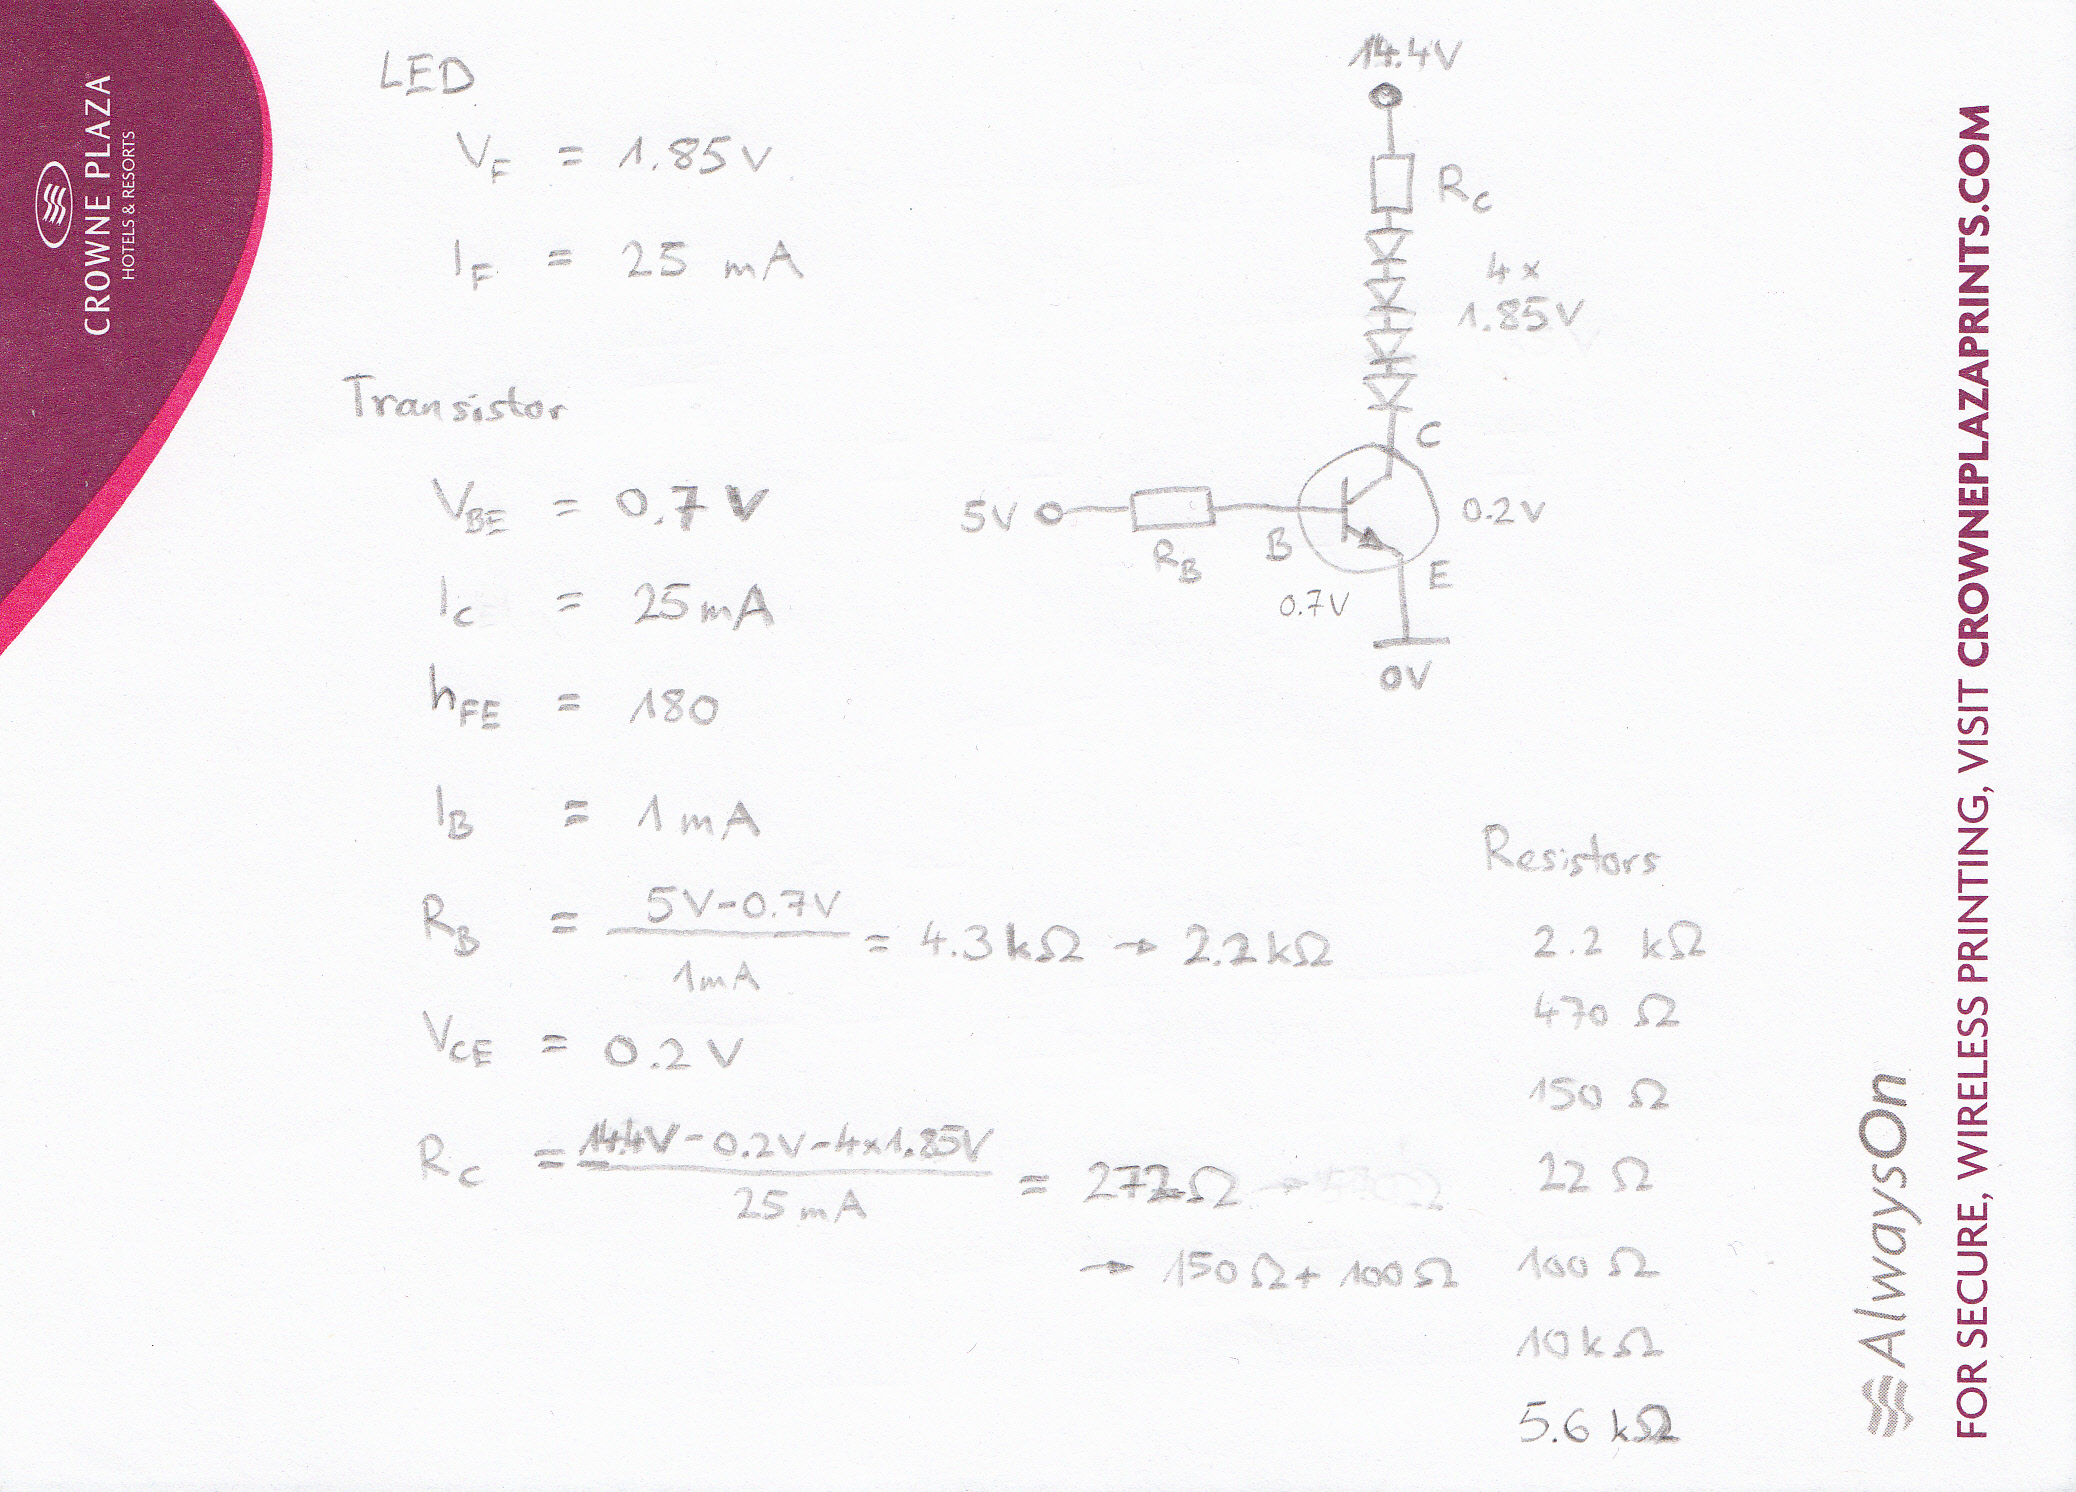 CROWNE PLAZA
HOTELS & RESORTS
LED
V_F = 1.85V
I_F = 25 mA
Transistor
V_BE = 0.7V
I_C = 25mA
h_FE = 180
I_B = 1mA
R_B = 5V-0.7V / 1mA = 4.3kΩ → 2.2kΩ
V_CE = 0.2V
R_C = 14.4V-0.2V-4x1.85V / 25mA = 272Ω →
→ 150Ω+100Ω
14.4V
R_C
4x
1.85V
C
5V
R_B
B
0.2V
E
0.7V
0V
Resistors
2.2 kΩ
470 Ω
150 Ω
22 Ω
100 Ω
10kΩ
5.6 kΩ
AlwaysOn
FOR SECURE, WIRELESS PRINTING, VISIT CROWNEPLAZAPRINTS.COM